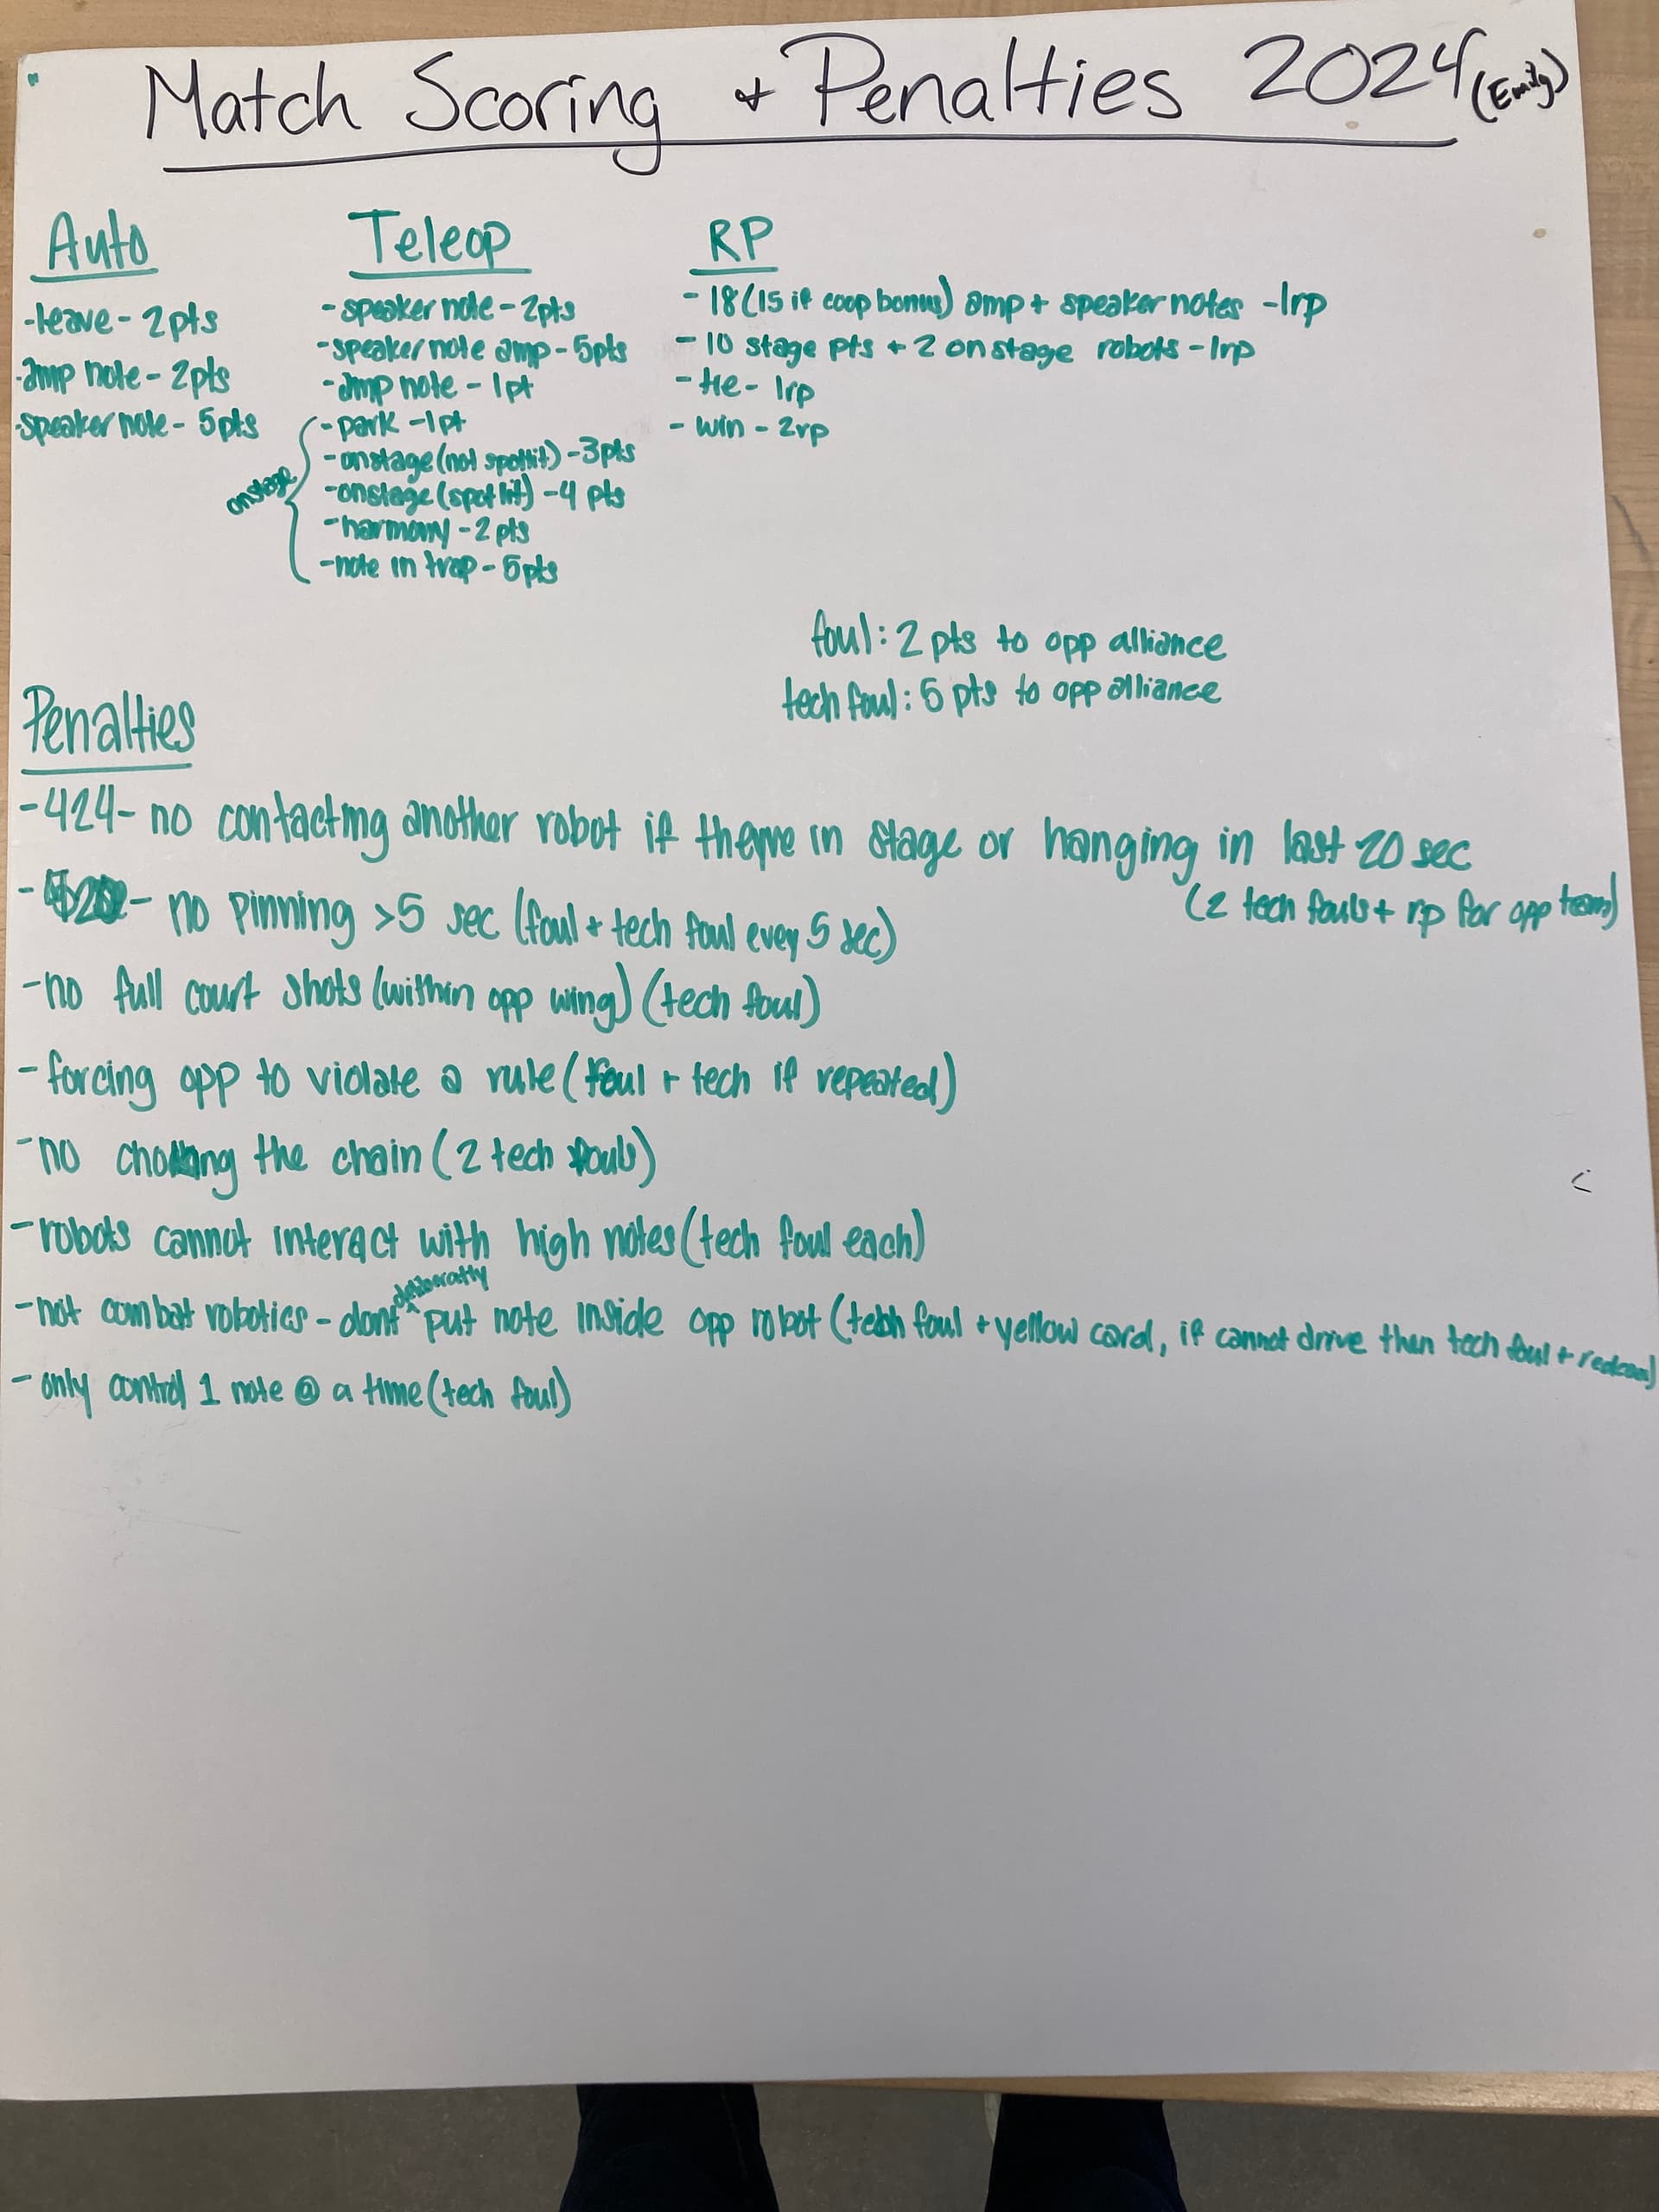 Match Scoring + Penalties 2024 (Emily)
Auto
-leave - 2pts
-amp note - 2pts
-speaker note - 5pts
Teleop
- speaker note - 2pts
-speaker note amp - 5pts
-amp note - 1pt
onstage
- park - 1pt
- onstage (not spotlit) - 3pts
-onstage (spotlit) - 4 pts
-harmony - 2 pts
-note in trap - 5pts
RP
- 18 (15 if coop bonus) amp + speaker notes - 1rp
- 10 stage pts + 2 onstage robots - 1rp
- tie - 1rp
- win - 2rp
foul: 2 pts to opp alliance
tech foul: 5 pts to opp alliance
Penalties
-424- no contacting another robot if theyre in stage or hanging in last 20 sec
(2 tech fouls + rp for opp team)
- - no pinning >5 sec (foul + tech foul evey 5 sec)
-no full court shots (within opp wing) (tech foul)
-forcing opp to violate a rule (foul + tech if repeated)
-no the chain (2 tech fouls)
-robots cannot interact with high notes (tech foul each)
-not combat robotics - dont ^deliberatly put note inside opp robot (tech foul + yellow card, if cannot drive then tech foul + redcard)
- only control 1 note @ a time (tech foul)